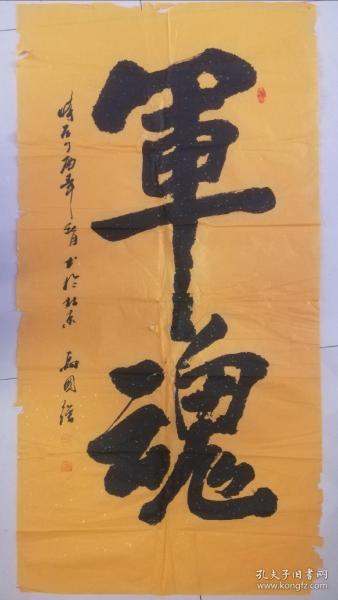 軍魂
時在丁酉年 月 书於北京 馬國強
孔夫子旧书网
www.kongfz.com